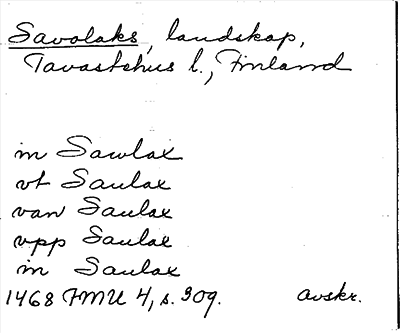 Savolaks, landskap,
Tavastehus l., Finland
in Sawlax
vt Saulax
van Saulax
vpp Saulax
in Saulax
1468 FMU 4, s. 309. avskr.